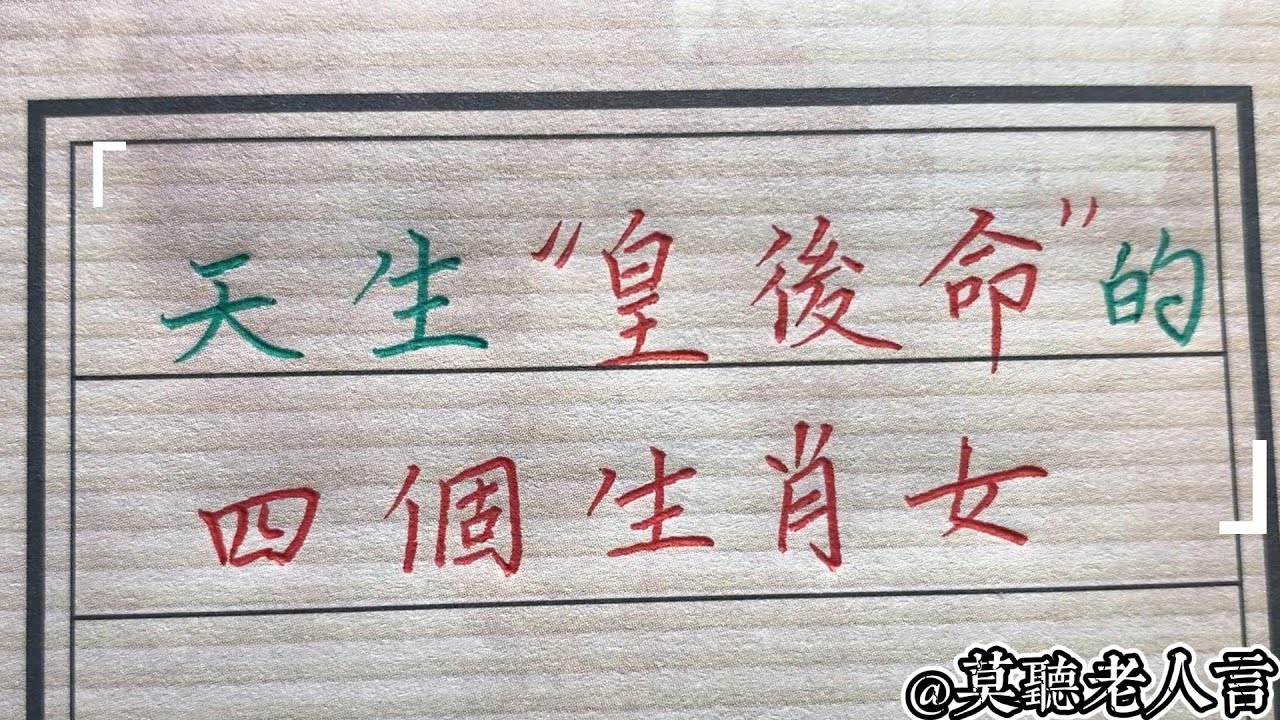 天生“皇後命”的
四個生肖女
@莫聽老人言